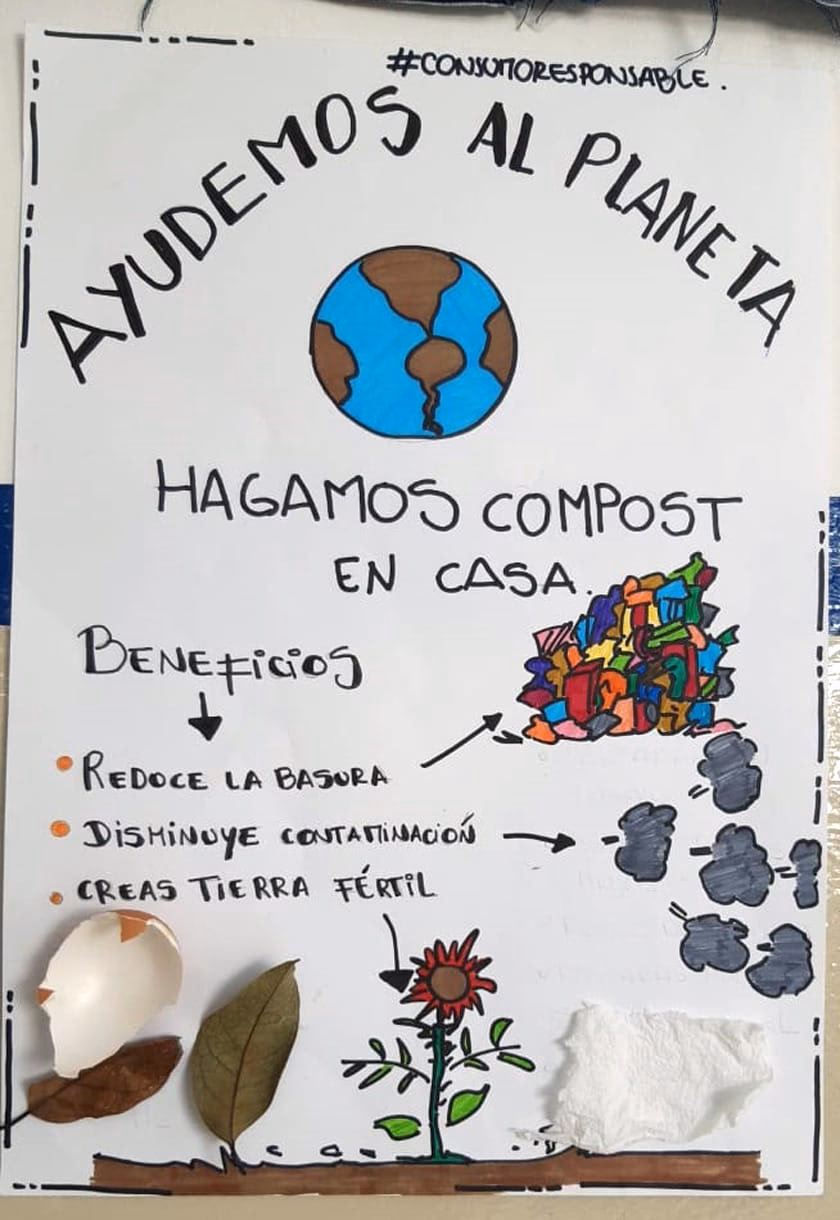 #CONSUMORESPONSABLE.
AYUDEMOS AL PLANETA
HAGAMOS COMPOST
EN CASA.
BENEFICIOS
REDOCE LA BASURA
DISMINUYE CONTAMINACIÓN
CREAS TIERRA FÉRTIL